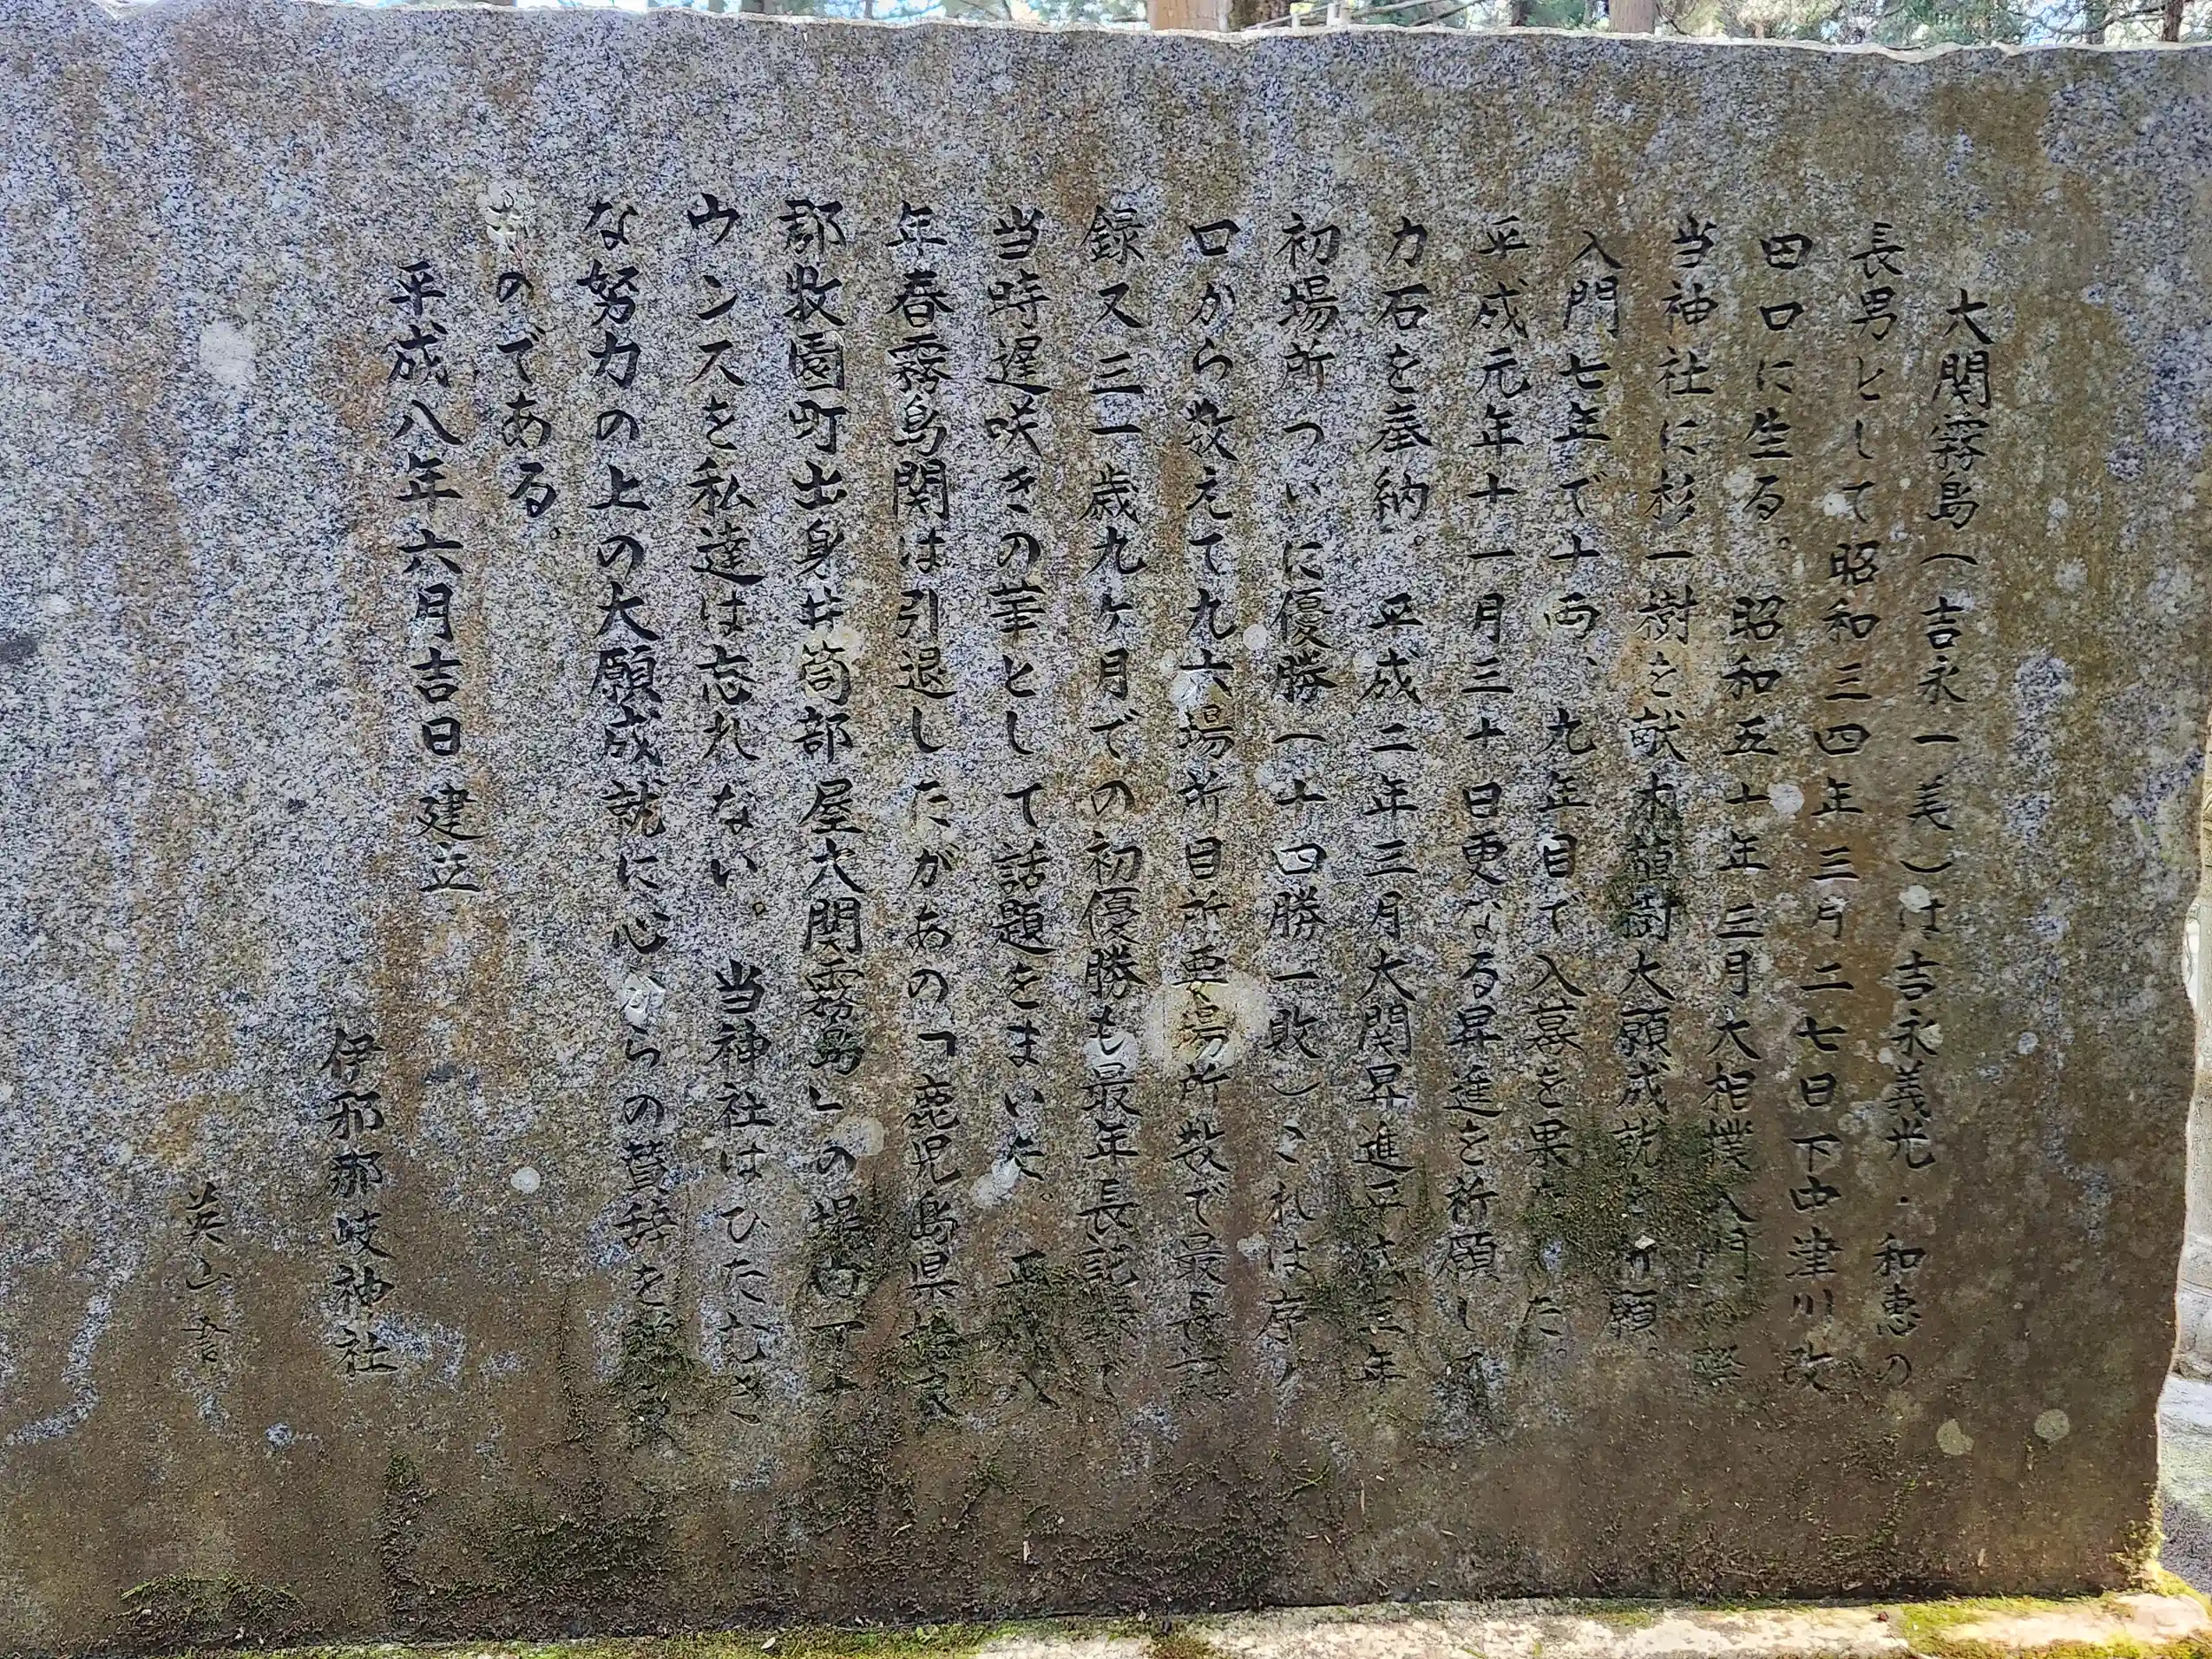 大関霧島(吉永一美)は吉永義光・和恵の
長男として昭和三四年三月二七日下中津川改
田口に生る。昭和五十年三月大相撲入門の際
当神社に杉一樹を献木植樹大願成就を祈願。
入門七年で十両、九年目で入幕を果した。
平成元年十一月三十日更なる昇進を祈願して
力石を奉納。平成二年三月大関昇進平成三年
初場所ついに優勝(十四勝一敗)これは序ノ
口から数えて九六場所目所要場所数で最長記
録又三一歳九ヶ月での初優勝も最年長記録で
当時遅咲きの華として話題をまいた。平成八
年春霧島関は引退したがあの「鹿児島県姶良
郡牧園町出身井筒部屋大関霧島」の場内アナ
ウンスを私達は忘れない。当神社はひたむき
な努力の上の大願成就に心からの賛辞を
ものである。
平成八年六月吉日建立
伊邪那岐神社
英山書